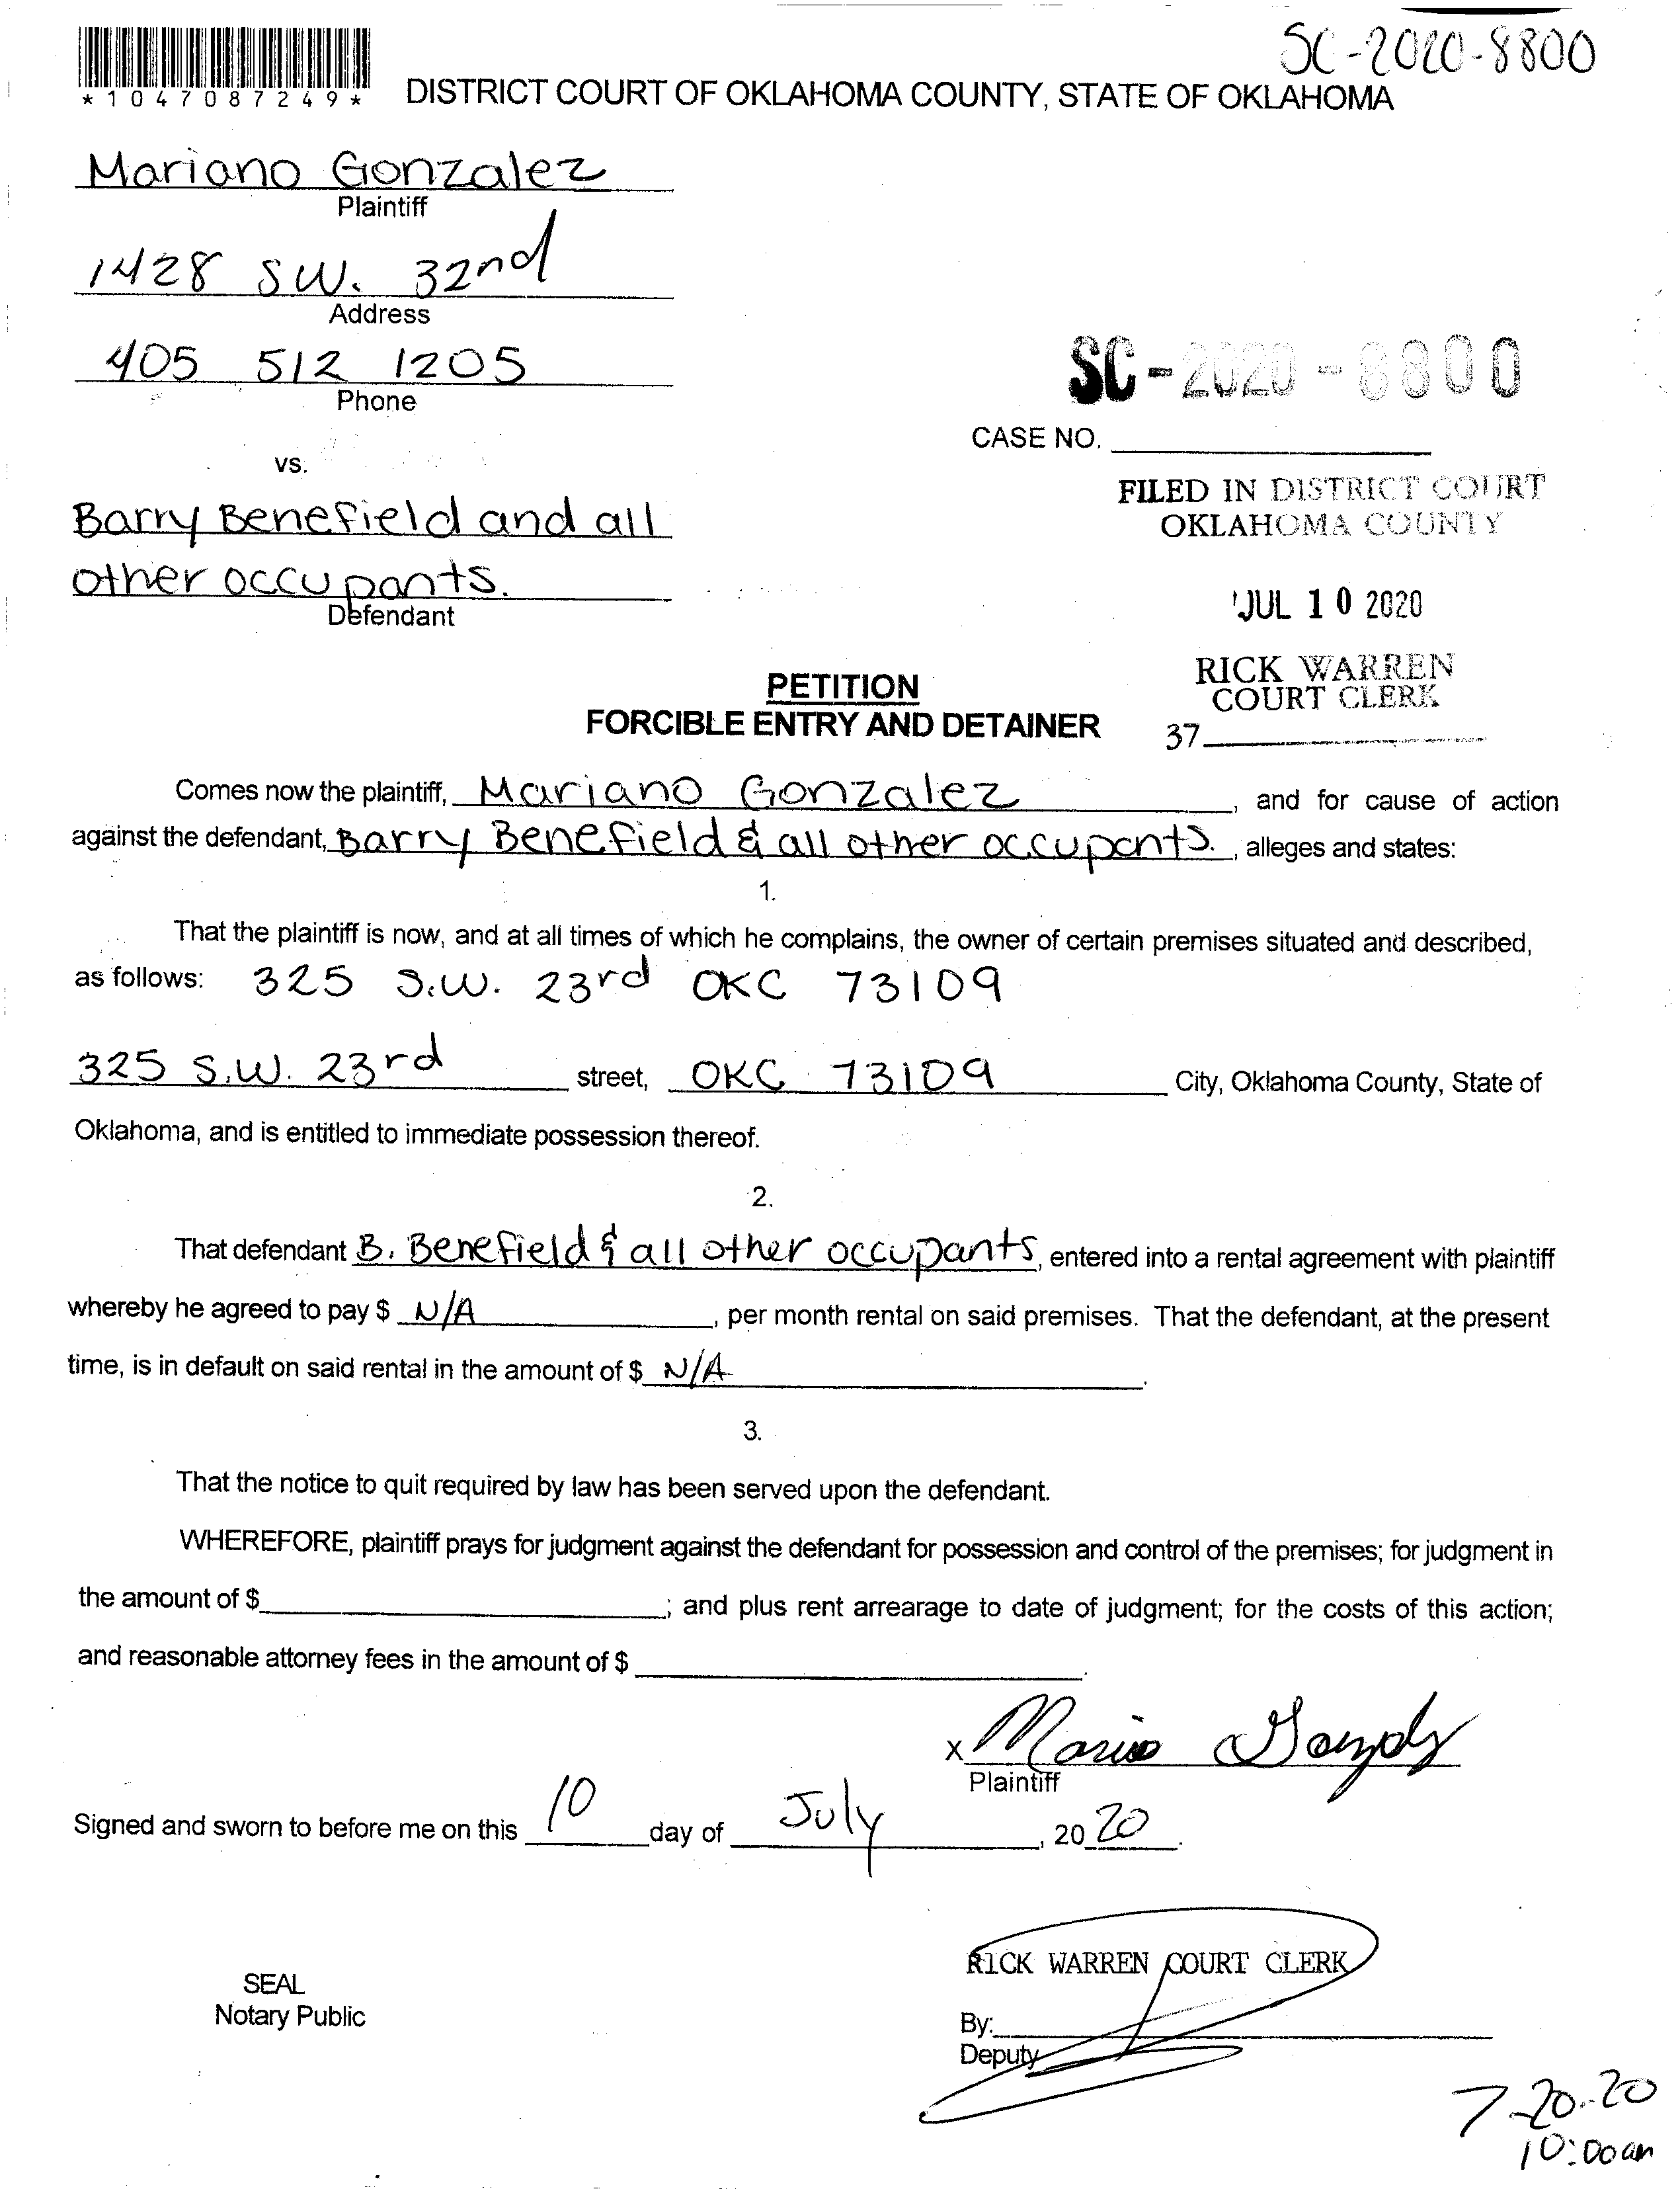 SC-2020-8800
*1047087249*
DISTRICT COURT OF OKLAHOMA COUNTY, STATE OF OKLAHOMA
Mariano Gonzalez
Plaintiff
1428 SW. 32nd
Address
405 512 1205
Phone
SC-2020-8800
CASE NO.
vs.
FILED IN DISTRICT COURT
OKLAHOMA COUNTY
Barry Benefield and all
other occupants.
Defendant
JUL 10 2020
RICK WARREN
COURT CLERK
37
PETITION
FORCIBLE ENTRY AND DETAINER
Comes now the plaintiff, Mariano Gonzalez, and for cause of action
against the defendant, Barry Benefield & all other occupants., alleges and states:
1.
That the plaintiff is now, and at all times of which he complains, the owner of certain premises situated and described,
as follows: 325 S.W. 23rd OKC 73109
325 S.W. 23rd street, OKC 73109 City, Oklahoma County, State of
Oklahoma, and is entitled to immediate possession thereof.
2.
That defendant B. Benefield & all other occupants, entered into a rental agreement with plaintiff
whereby he agreed to pay $ N/A, per month rental on said premises. That the defendant, at the present
time, is in default on said rental in the amount of $ N/A.
3.
That the notice to quit required by law has been served upon the defendant.
WHEREFORE, plaintiff prays for judgment against the defendant for possession and control of the premises; for judgment in
the amount of $ ; and plus rent arrearage to date of judgment; for the costs of this action;
and reasonable attorney fees in the amount of $ .
X
Plaintiff
Signed and sworn to before me on this 10 day of July, 2020.
RICK WARREN COURT CLERK
SEAL
Notary Public
By:
Deputy
7-20-20
10:00am